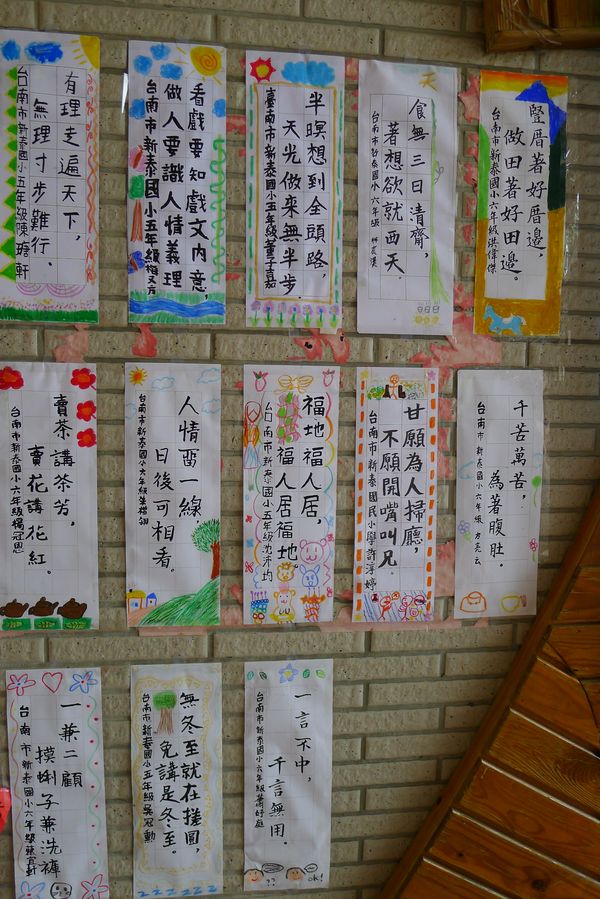 有理走遍天下，
無理寸步難行。
台南市新泰國小五年級陳瑭軒
看戲要知戲文內意，
做人要識人情義理
台南市新泰國小五年級
半暝想到全頭路，
天光做來無半步。
臺南市新泰國小五年級董子嘉
食無三日清齋，
著想欲就西天。
台南市新泰國小六年級
豎厝著好厝邊，
做田著好田邊。
台南市新泰國小六年級洪偉傑
賣茶講茶芳，
賣花講花紅。
台南市新泰國小六年級楊冠恩
人情留一線，
日後可相看。
台南市新泰國小六年級
福地福人居，
福人居福地。
台南市新泰國小五年級沈沛均
甘願為人掃廳，
不願開嘴叫兄。
台南市新泰國民小學許淳婷
千苦萬苦，
為著腹肚。
台南市新泰國小六年級方亮云
一兼二顧
摸蜊子兼洗褲
台南市新泰國小六年級
無冬至就在搓圓，
免講是冬至。
台南市新泰國小五年級吳冠勳
一言不中，
千言無用。
台南市新泰國小六年級
??
ok!